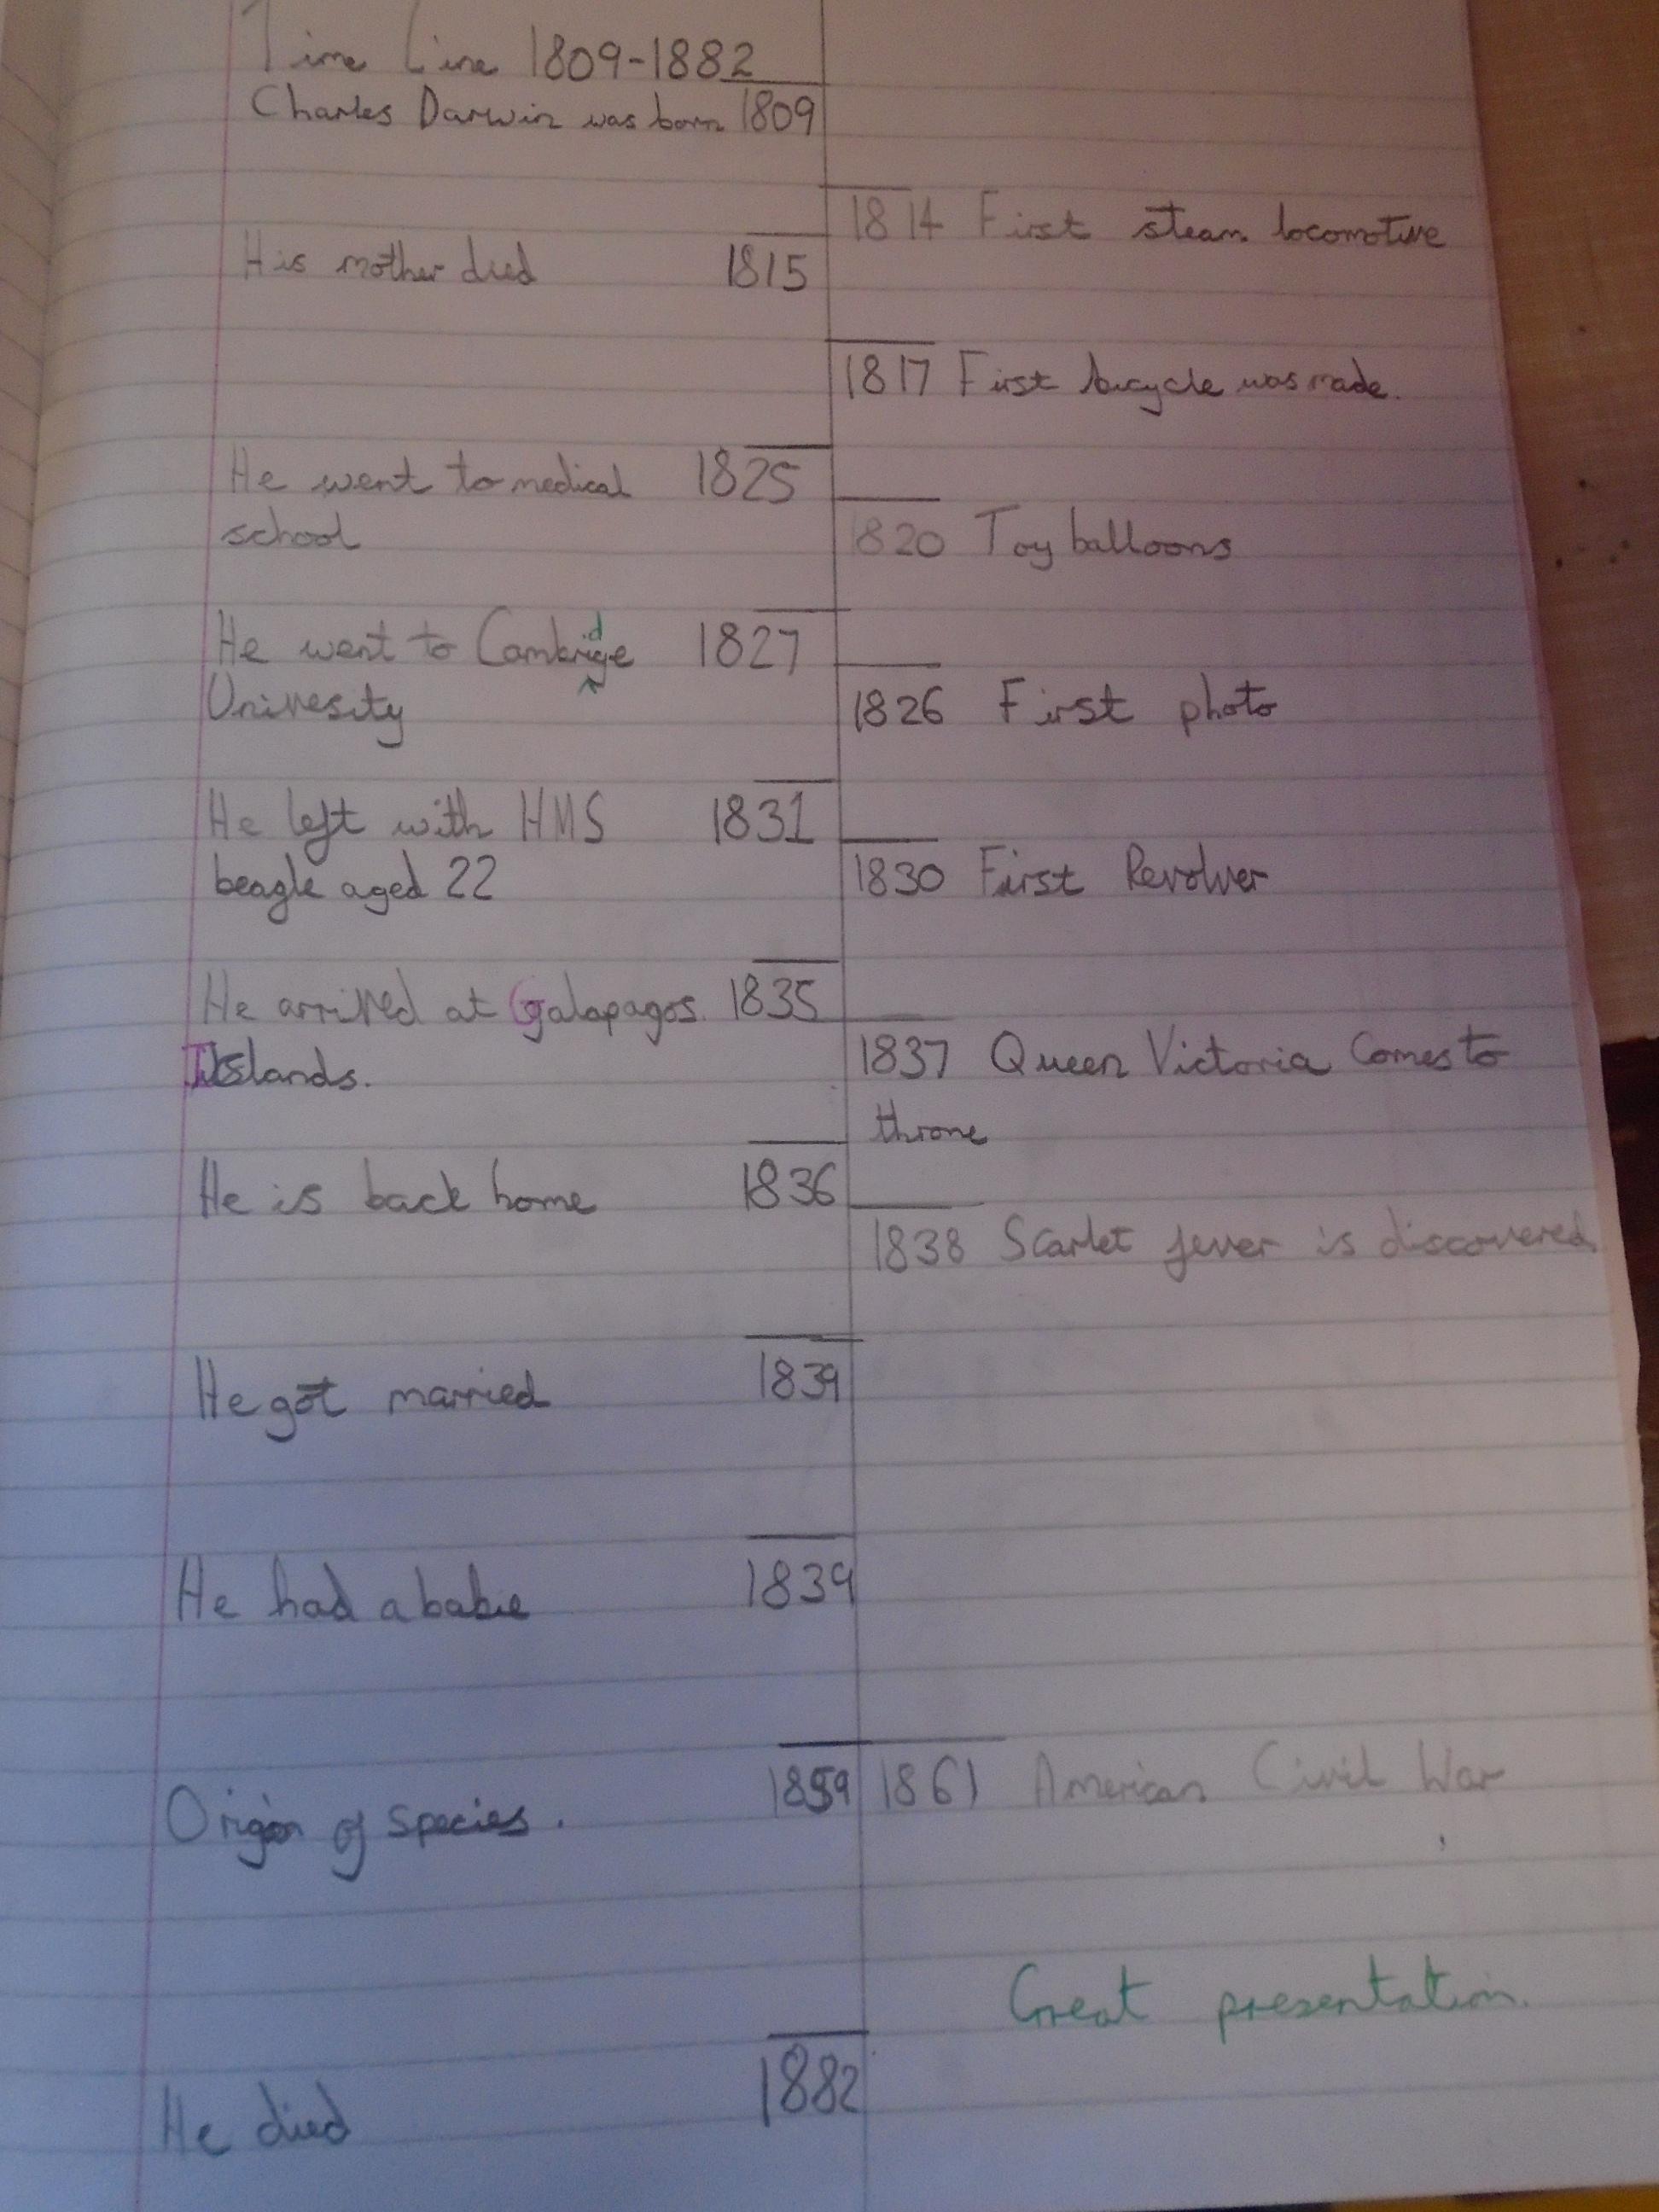 Time Line 1809-1882
Charles Darwin was born 1809
1814 First steam locomotive
His mother died 1815
1817 First bicycle was made.
He went to medical 1825
school
1820 Toy balloons
He went to Cambridge 1827
Univesity
1826 First photo
He left with HMS 1831
beagle aged 22
1830 First Revolver
He arrived at Galapagos 1835
Islands.
1837 Queen Victoria Comes to
throne
He is back home 1836
1838 Scarlet fever is discovered
He got married 1839
He had a babie 1839
Origin of species. 1859
1861 American Civil War
Great presentation.
He died 1882